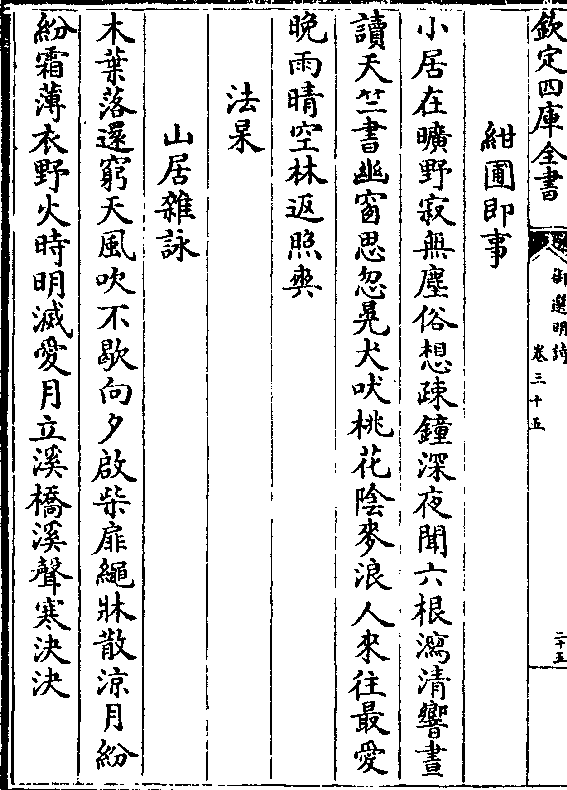 欽定四庫全書
御選明詩
卷三十五
二十五
紺圃即事
小居在曠野寂無塵俗想疎鐘深夜聞六根瀉清響晝
讀天竺書幽窗思忽晃犬吠桃花陰麥浪人來往最愛
晚雨晴空林返照爽
法杲
山居雜詠
木葉落還窮天風吹不歇向夕啟柴扉繩牀散涼月紛
紛霜薄衣野火時明滅愛月立溪橋溪聲寒決決